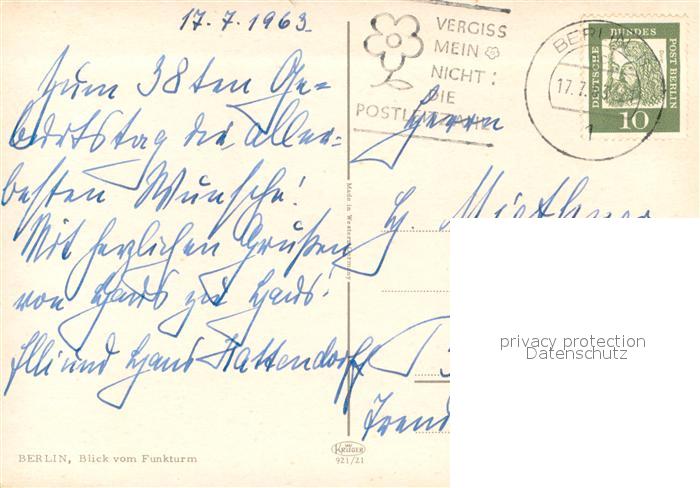 17.7.1963
Zum 38ten Ge-
burtstag die aller-
besten Wünsche!
Mit herzlichen Grüßen
von Haus zu Haus!
Elli und Hans Hattendorff
BERLIN, Blick vom Funkturm
VERGISS
MEIN
NICHT:
DIE
BERLIN
17.7.63
1
DEUTSCHE BUNDES POST BERLIN
10
Herrn
H. Miethner
Made in Western Germany
privacy protection
Datenschutz
KRÜGER
921/21